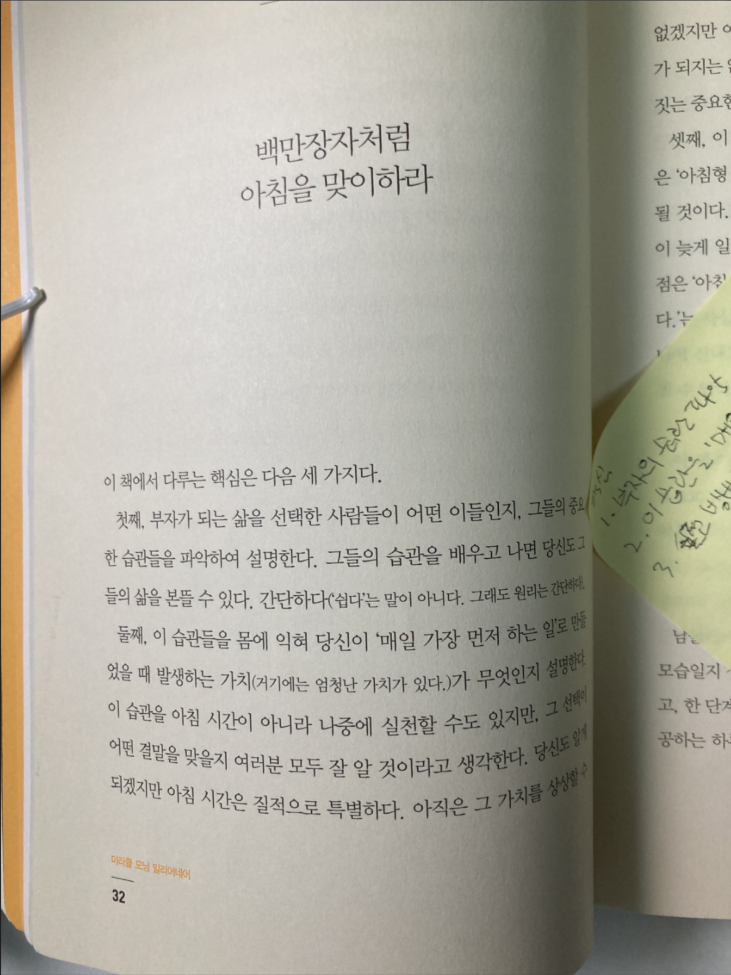 백만장자처럼
아침을 맞이하라
이 책에서 다루는 핵심은 다음 세 가지다.
첫째, 부자가 되는 삶을 선택한 사람들이 어떤 이들인지, 그들의 중요
한 습관들을 파악하여 설명한다. 그들의 습관을 배우고 나면 당신도 그
들의 삶을 본뜰 수 있다. 간단하다(‘쉽다’는 말이 아니다. 그래도 원리는 간단하다).
둘째, 이 습관들을 몸에 익혀 당신이 ‘매일 가장 먼저 하는 일’로 만들
었을 때 발생하는 가치(거기에는 엄청난 가치가 있다.)가 무엇인지 설명한다.
이 습관을 아침 시간이 아니라 나중에 실천할 수도 있지만, 그 선택이
어떤 결말을 맞을지 여러분 모두 잘 알 것이라고 생각한다. 당신도 알게
되겠지만 아침 시간은 질적으로 특별하다. 아직은 그 가치를 상상할 수
미라클 모닝 밀리어네어
32
없겠지만
가 되지는
짓는 중요한
셋째, 이
은 ‘아침형
될 것이다.
이 늦게 일
점은 ‘아침
다.’는
1. 부자의 습관 파악
2. 이 습관을
3.
모습일지
고, 한 단계
공하는 하루